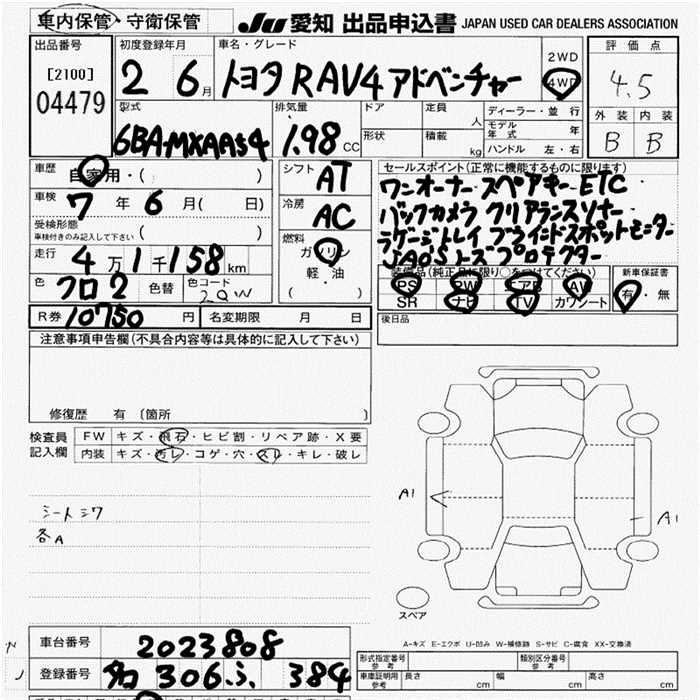 車内保管・守衛保管 JU 愛知 出品申込書 JAPAN USED CAR DEALERS ASSOCIATION
出品番号 初度登録年月 車名・グレード 評価点
[2100] 04479 2 6月 トヨタ RAV4 アドベンチャー 2WD 4WD 4.5
型式 排気量 ドア 定員 人 ディーラー・並行 外装 内装
6BA-MXAA54 1.98 CC 形状 積載 kg モデル年式 年 ハンドル 左・右 B B
車歴 自家用・( ) シフト AT セールスポイント(正常に機能するものに限ります)
車検 7年 6月( 日) 冷房 AC ワンオーナー スペアキー ETC
受検形態 車検付きのみ記入して下さい ( ) バックカメラ クリアランスソナー
走行 4万1千158km 燃料 ガソリン ラゲージトレイ ブラインドスポットモニター
軽・油 ( )
装備品(純正品に限り○をつけてください) 新車保証書
色 クロ2 色替 色コード PS PW エアB AW 有・無
SR ナビ TV カワシート
R券 10750円 名変期限 月 日 後日品
注意事項申告欄(不具合内容等は具体的に記入して下さい)
修復歴 有 〔箇所 〕
検査員記入欄 FW キズ・飛石・ヒビ割・リペア跡・X要
内装 キズ・汚レ・コゲ・穴・スレ・キレ・破レ
シートシワ
各A
A1 A1
スペア
A-キズ E-エクボ U-凹み W-補修跡 S-サビ C-腐食 XX-交換済
車台番号 2023808
登録番号 306 ふ 384
形式指定番号 参考 類別区分番号 参考
自動車検査証明用 参考 長さ cm 幅 cm 高さ cm